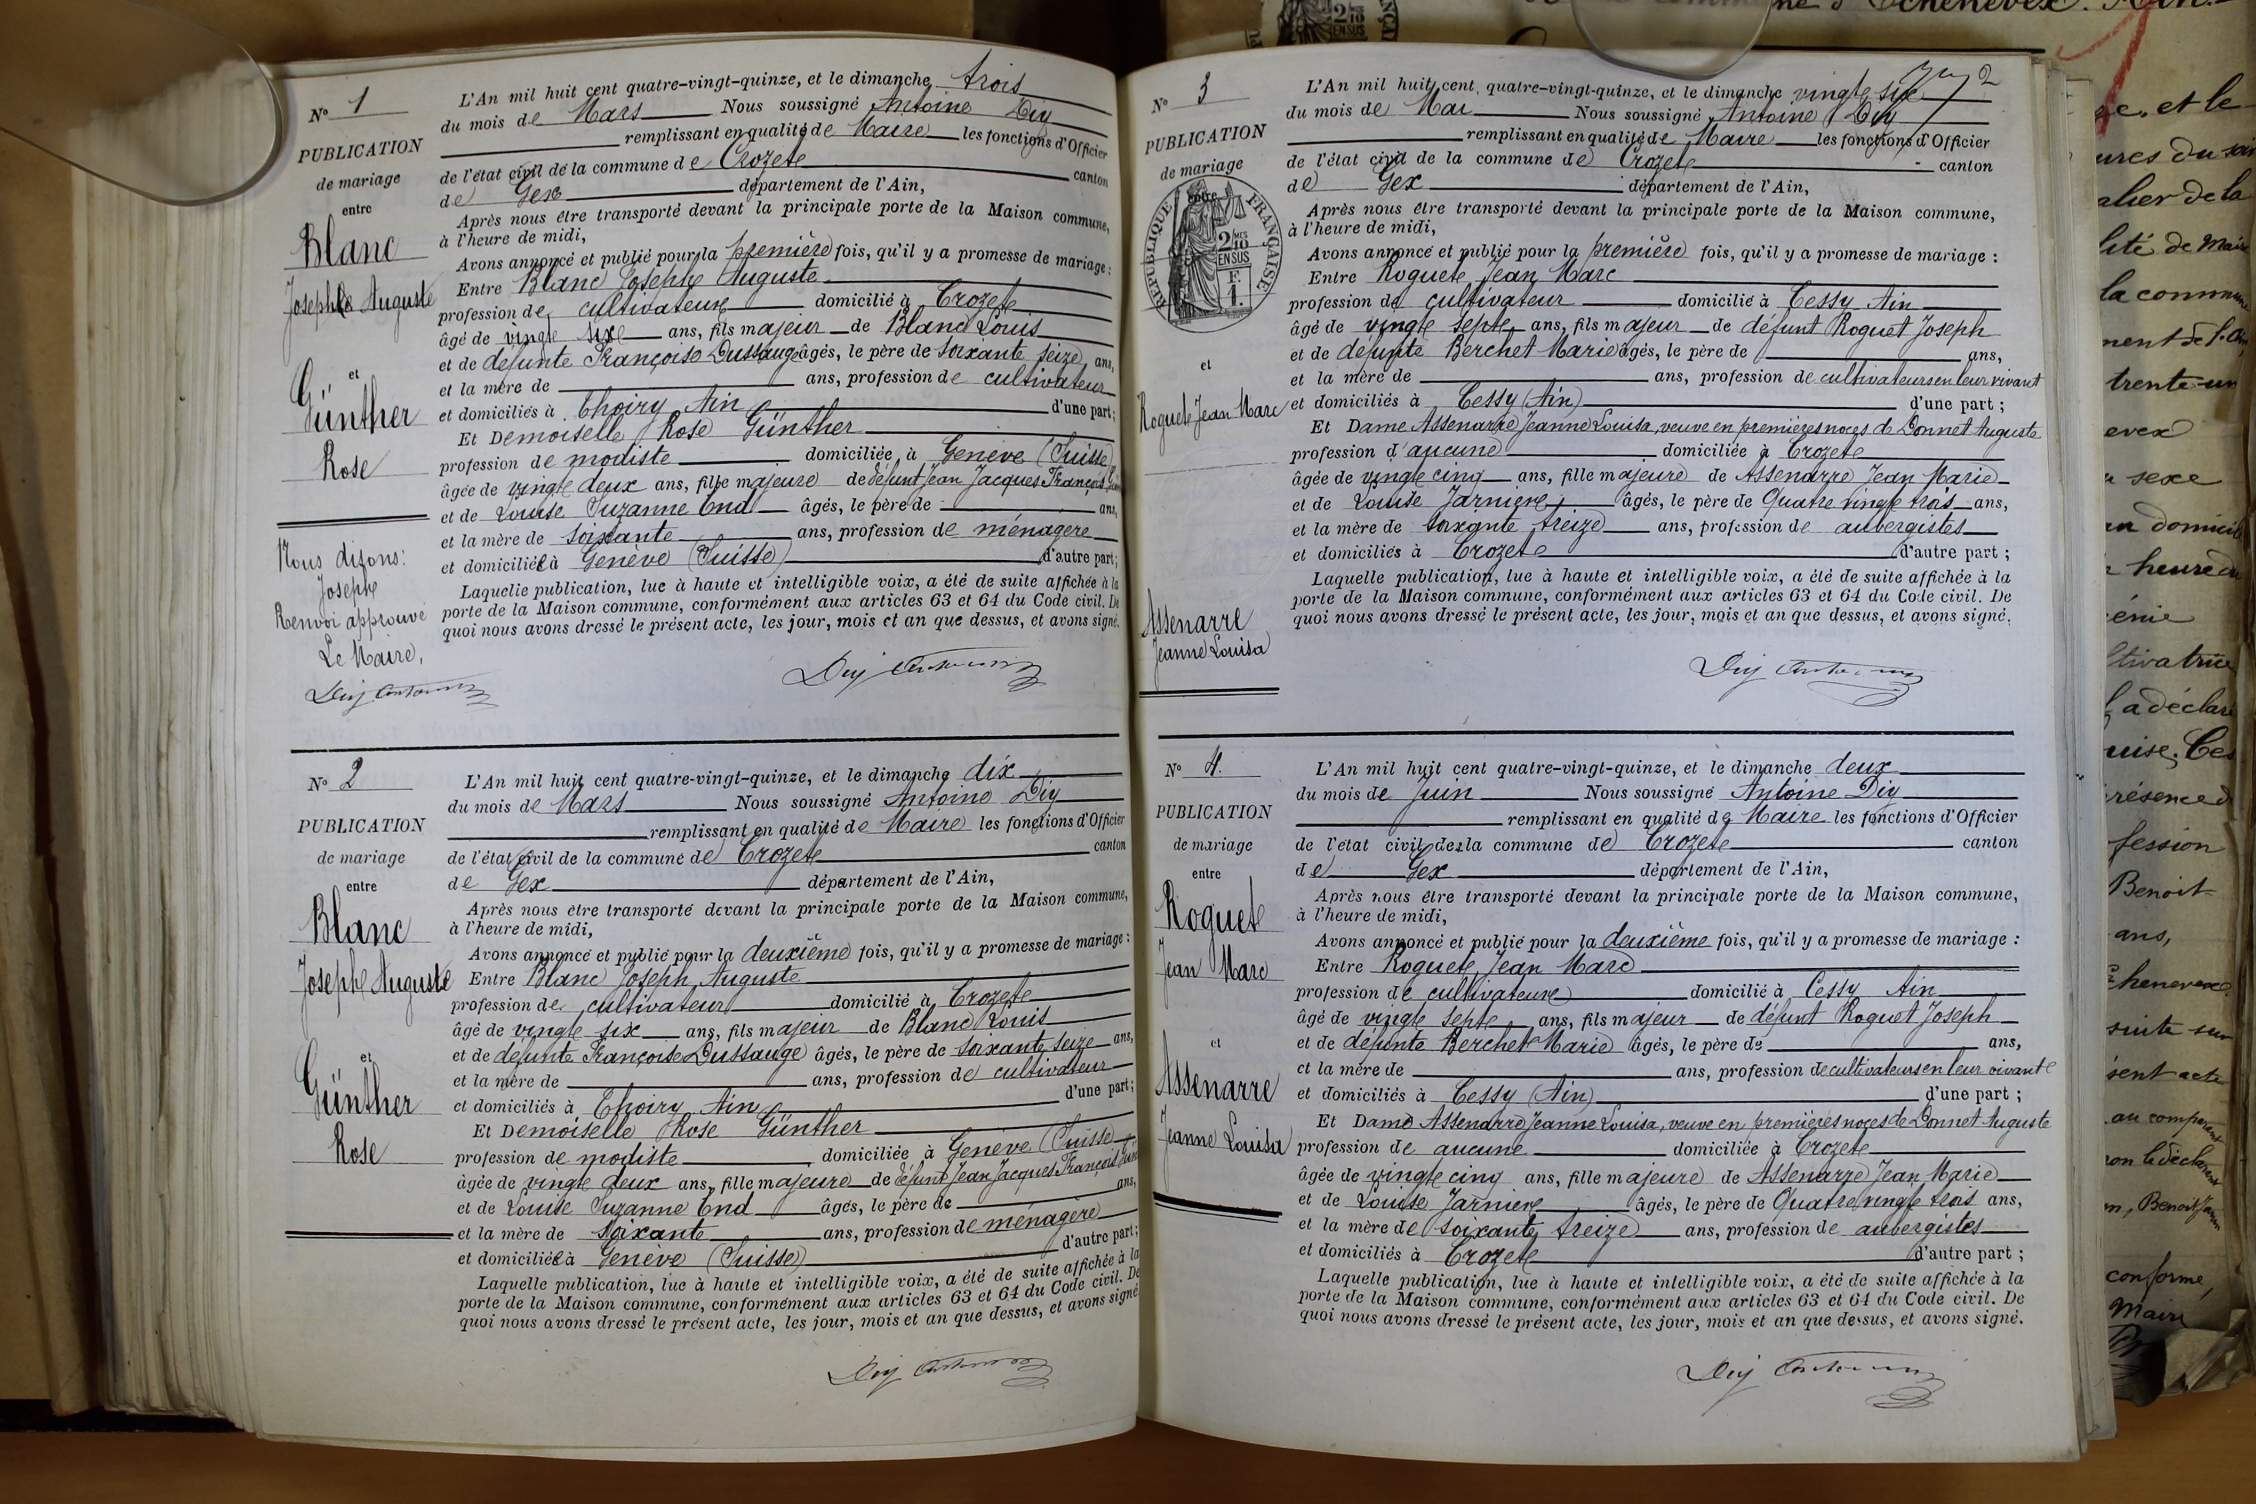 N° 1
PUBLICATION
de mariage
entre
Blanc
Joseph Auguste
et
Günther
Rose
Nous disons:
Joseph
Renvoi approuvé
Le Maire,
Diy Antoine
L'An mil huit cent quatre-vingt-quinze, et le dimanche trois
du mois de Mars Nous soussigné Antoine Diy
remplissant en qualité de Maire les fonctions d'Officier
de l'état civil de la commune de Crozet canton
de Gex département de l'Ain,
Après nous être transporté devant la principale porte de la Maison commune,
à l'heure de midi,
Avons annoncé et publié pour la première fois, qu'il y a promesse de mariage :
Entre Blanc Joseph Auguste
profession de cultivateur domicilié à Crozet
âgé de vingt six ans, fils majeur de Blanc Louis
et de défunte Françoise Dussauge âgés, le père de soixante seize ans,
et la mère de ans, profession de cultivateur
et domiciliés à Thoiry Ain d'une part ;
Et Demoiselle Rose Günther
profession de modiste domiciliée à Genève (Suisse)
âgée de vingt deux ans, fille majeure de défunt Jean Jacques François
et de Louise Suzanne End âgés, le père de ans,
et la mère de soixante ans, profession de ménagère
et domiciliée à Genève (Suisse) d'autre part ;
Laquelle publication, lue à haute et intelligible voix, a été de suite affichée à la
porte de la Maison commune, conformément aux articles 63 et 64 du Code civil. De
quoi nous avons dressé le présent acte, les jour, mois et an que dessus, et avons signé.
Diy Antoine
N° 2
PUBLICATION
de mariage
entre
Blanc
Joseph Auguste
et
Günther
Rose
L'An mil huit cent quatre-vingt-quinze, et le dimanche dix
du mois de Mars Nous soussigné Antoine Diy
remplissant en qualité de Maire les fonctions d'Officier
de l'état civil de la commune de Crozet canton
de Gex département de l'Ain,
Après nous être transporté devant la principale porte de la Maison commune,
à l'heure de midi,
Avons annoncé et publié pour la deuxième fois, qu'il y a promesse de mariage :
Entre Blanc Joseph Auguste
profession de cultivateur domicilié à Crozet
âgé de vingt six ans, fils majeur de Blanc Louis
et de défunte Françoise Dussauge âgés, le père de soixante seize ans,
et la mère de ans, profession de cultivateur
et domiciliés à Thoiry Ain d'une part ;
Et Demoiselle Rose Günther
profession de modiste domiciliée à Genève (Suisse)
âgée de vingt deux ans, fille majeure de défunt Jean Jacques François
et de Louise Suzanne End âgés, le père de ans,
et la mère de soixante ans, profession de ménagère
et domiciliée à Genève (Suisse) d'autre part ;
Laquelle publication, lue à haute et intelligible voix, a été de suite affichée à la
porte de la Maison commune, conformément aux articles 63 et 64 du Code civil. De
quoi nous avons dressé le présent acte, les jour, mois et an que dessus, et avons signé
Diy Antoine
2
N° 3
PUBLICATION
de mariage
entre
RÉPUBLIQUE FRANÇAISE
2 MES 10
EN SUS
F. 1.
et
Roguet Jean Marc
Assenarre
Jeanne Louisa
L'An mil huit cent quatre-vingt-quinze, et le dimanche vingt six
du mois de Mai Nous soussigné Antoine Diy
remplissant en qualité de Maire les fonctions d'Officier
de l'état civil de la commune de Crozet canton
de Gex département de l'Ain,
Après nous être transporté devant la principale porte de la Maison commune,
à l'heure de midi,
Avons annoncé et publié pour la première fois, qu'il y a promesse de mariage :
Entre Roguet Jean Marc
profession de cultivateur domicilié à Cessy Ain
âgé de vingt sept ans, fils majeur de défunt Roguet Joseph
et de défunte Berchet Marie âgés, le père de ans,
et la mère de ans, profession de cultivateurs en leur vivant
et domiciliés à Cessy (Ain) d'une part ;
Et Dame Assenarre Jeanne Louisa, veuve en premières noces de Donnet Auguste
profession d'aucune domiciliée à Crozet
âgée de vingt cinq ans, fille majeure de Assenarre Jean Marie
et de Louise Jarniere âgés, le père de Quatre vingt trois ans,
et la mère de soixante treize ans, profession de aubergistes
et domiciliés à Crozet d'autre part ;
Laquelle publication, lue à haute et intelligible voix, a été de suite affichée à la
porte de la Maison commune, conformément aux articles 63 et 64 du Code civil. De
quoi nous avons dressé le présent acte, les jour, mois et an que dessus, et avons signé.
Diy Antoine
N° 4.
PUBLICATION
de mariage
entre
Roguet
Jean Marc
et
Assenarre
Jeanne Louisa
L'An mil huit cent quatre-vingt-quinze, et le dimanche deux
du mois de Juin Nous soussigné Antoine Diy
remplissant en qualité de Maire les fonctions d'Officier
de l'état civil de la commune de Crozet canton
de Gex département de l'Ain,
Après nous être transporté devant la principale porte de la Maison commune,
à l'heure de midi,
Avons annoncé et publié pour la deuxième fois, qu'il y a promesse de mariage :
Entre Roguet Jean Marc
profession de cultivateur domicilié à Cessy Ain
âgé de vingt sept ans, fils majeur de défunt Roguet Joseph
et de défunte Berchet Marie âgés, le père de ans,
et la mère de ans, profession de cultivateurs en leur vivant
et domiciliés à Cessy (Ain) d'une part ;
Et Dame Assenarre Jeanne Louisa, veuve en premières noces de Donnet Auguste
profession de aucune domiciliée à Crozet
âgée de vingt cinq ans, fille majeure de Assenarre Jean Marie
et de Louise Jarniere âgés, le père de Quatre vingt trois ans,
et la mère de soixante treize ans, profession de aubergistes
et domiciliés à Crozet d'autre part ;
Laquelle publication, lue à haute et intelligible voix, a été de suite affichée à la
porte de la Maison commune, conformément aux articles 63 et 64 du Code civil. De
quoi nous avons dressé le présent acte, les jour, mois et an que dessus, et avons signé.
Diy Antoine
et le
du soir
de la
de Maire
la commune
trente-un
sexe
heure du
a déclaré
Benoit
ans,
acte
conforme,
Maire